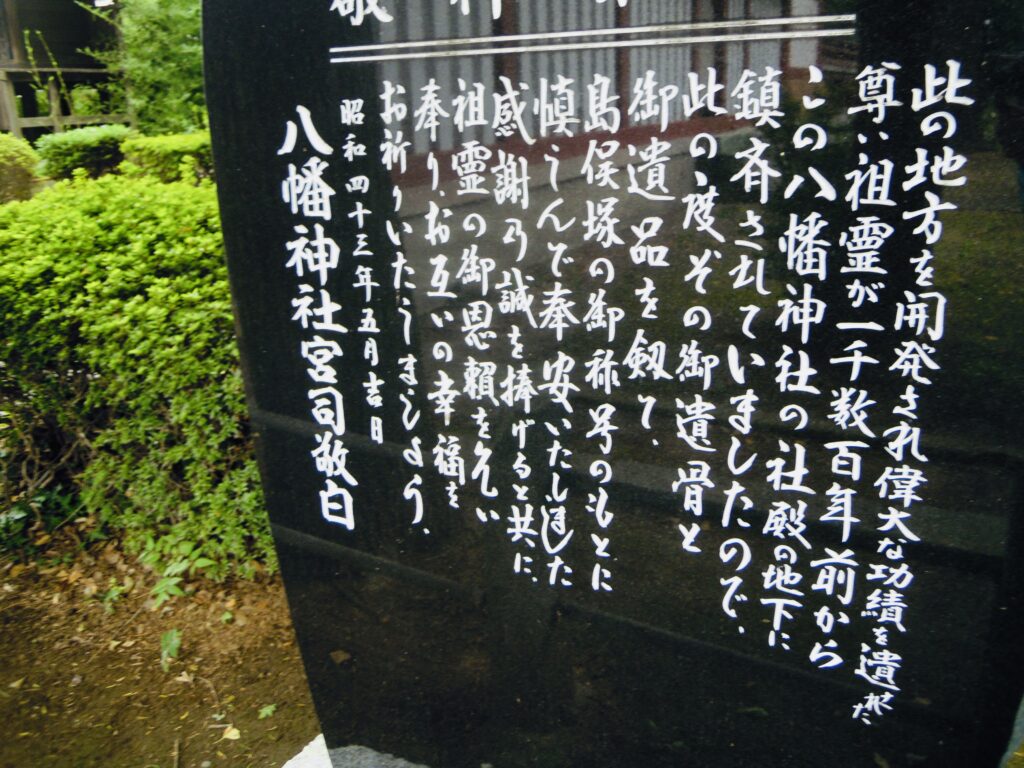 敬神
此の地方を開発され偉大な功績を遺された
尊い祖霊が一千数百年前から
この八幡神社の社殿の地下に
鎮斉されていましたので、
此の度その御遺骨と
御遺品を剱て、
島俣塚の御称号のもとに
慎しんで奉安いたしました
感謝乃誠を捧げると共に、
祖霊の御恩頼を乞い
奉り、お互いの幸福を
お祈りいたしましょう、
昭和四十三年五月吉日
八幡神社宮司敬白